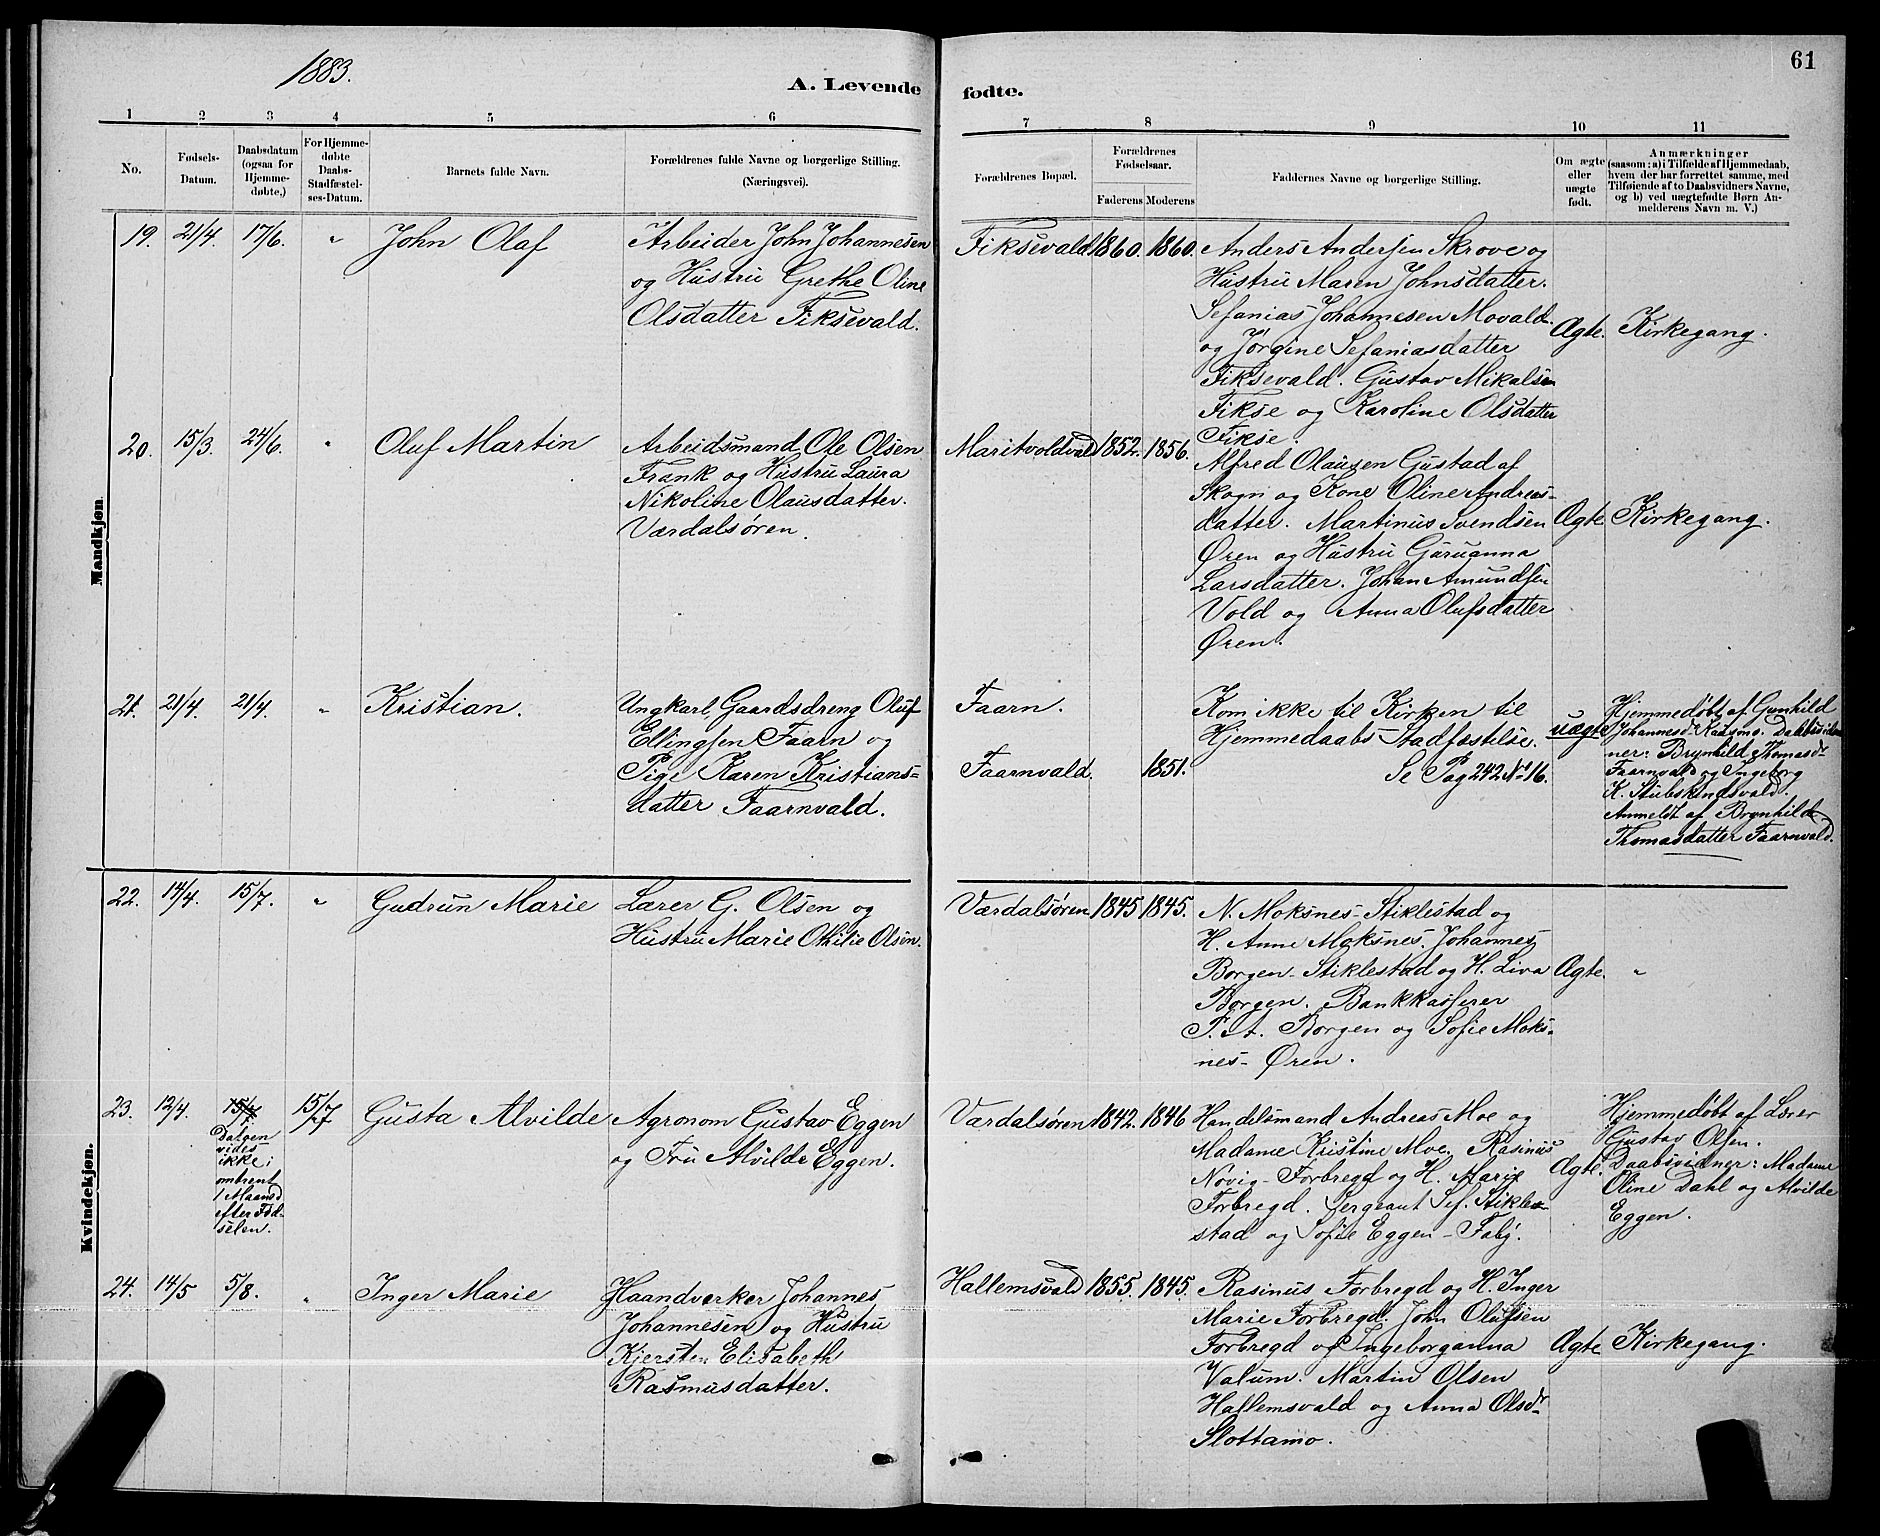 1883.
61
A. Levende fødte.
1 2 3 4 5 6 7 8 9 10 11
No.
Fødsels-
Datum.
Daabsdatum
(ogsaa for
Hjemme-
døbte,)
For Hjemme-
døbte
Daabs-
Stadfæstel-
ses-Datum.
Barnets fulde Navn.
Forældrenes fulde Navne og borgerlige Stilling.
(Næringsvei).
Forældrenes Bopæl.
Forældrenes
Fødselsaar.
Faderens
Moderens
Faddernes Navne og borgerlige Stilling.
Om ægte
eller
uægte
født.
Anmærkninger
(saasom: a) i Tilfælde af Hjemmedaab,
hvem der har forrettet samme, med
Tilføiende af to Daabsvidners Navne,
og b) ved uægtefødte Børn An-
melderens Navn m. V.)
Mandkjøn.
19. 21/4. 17/6. " John Olaf
Arbeider John Johannesen
og Hustru Grethe Oline
Olsdatter Fiksevald.
Fiksevald 1860. 1860.
Anders Andersen Skrove og
Hustru Maren Johnsdatter.
Sefanias Johannesen Movald
og Jørgine Sefaniasdatter
Fiksevald. Gustav Mikalsen
Fikse og Karoline Olsdatter
Fikse.
Ægte. Kirkegang.
20. 15/3. 24/6. " Oluf Martin
Arbeidsmand Ole Olsen
Frank og Hustru Laura
Nikoline Olausdatter.
Værdalsøren.
Maritvoldvald 1852. 1856.
Alfred Olausen Gustad af
Skogn og Kone Oline Andreas-
datter. Martinus Svendsen
Øren og Hustru Guruanna
Larsdatter. Johan Amundsen
Vold og Anna Olufsdatter
Øren.
Ægte Kirkegang.
21. 21/4. 21/4. " Kristian.
Ungkarl, Gaardsdreng Oluf
Ellingsen Faarn og
Pige Karen Kristians-
datter Faarnvald.
Faarn.
Faarnvald. 1851.
Kom ikke til Kirken til
Hjemmedaabs-Stadfæstilse.
Se Pag 242 No 16.
uægte
Hjemmedøbt af Gunhild
Johannesd. Daabsvid-
ner: Brynhild Thomasdr
Faarnvald og Ingeborg
K. Stubskindsvald.
Anmeldt af Brynhild
Thomasdatter Faarnvald.
Kvindekjøn.
22. 14/4. 15/7. " Gudrun Marie
Lærer G. Olsen og
Hustru Marie Othilie Olsen.
Værdalsøren 1845 1845.
N. Moksnes-Stiklestad og
H. Anne Moksnes. Johannes
Borgen-Stiklestad og H. Liva
Borgen. Bankkasserer
P. A. Borgen og Sofie Moks-
nes-Øren.
Ægte. "
23. 12/4. 15/7. 15/7 Gusta Alvilde
Dalgen
vides
ikke;
omtrent
1 Maaned
efter Fød-
selen.
Agronom Gustav Eggen
og Fru Alvilde Eggen.
Værdalsøren 1842. 1846
Handelsmand Andreas Moe og
Madame Kristine Moe. Rasinus
Nøvig-Forbregd og H. Marie
Forbregd. Sergeant Sef. Stikle-
stad og Sofie Eggen-Faby.
Ægte.
Hjemmedøbt af Lærer
Gustav Olsen.
Daabsvidner: Madame
Oline Dahl og Alvilde
Eggen.
24. 14/5 5/8. " Inger Marie
Haandverker Johannes
Johannesen og Hustru
Kjersten Elisabeth
Rasmusdatter.
Hallemsvald 1855. 1845.
Rasinus Forbregd og H. Inger
Marie Forbregd. John Olufsen
Forbregd og Ingeborganna
Valum. Martin Olsen
Hallemsvald og Anna Olsdr
Slottamo.
Ægte Kirkegang.